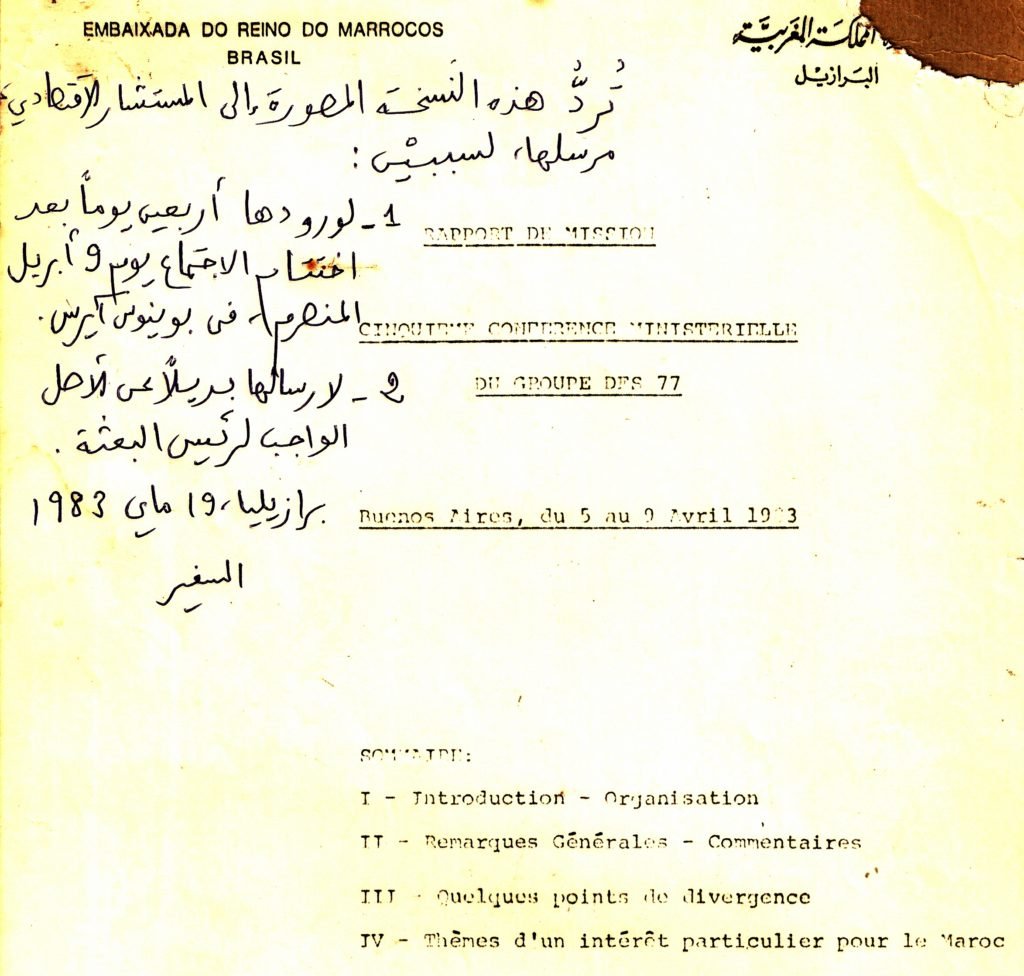 EMBAIXADA DO REINO DO MARROCOS
BRASIL
المملكة المغربية
البرازيل
تُردُّ هذه النسخة المصورة إلى المستشار الاقتصادي
مرسلها، لسببين :
1 - لورودها أربعين يوماً بعد
اختتام الاجتماع يوم 9 أبريل
المنصرم، في بوينوس آيرس.
2 - لإرسالها بديلاً عن الأصل
الواجب لرئيس البعثة .
برازيليا، 19 ماي 1983
السفير
RAPPORT DE MISSION
CINQUIEME CONFERENCE MINISTERIELLE
DU GROUPE DES 77
Buenos Aires, du 5 au 9 Avril 1983
SOMMAIRE:
I - Introduction - Organisation
II - Remarques Générales - Commentaires
III - Quelques points de divergence
IV - Thèmes d'un intérêt particulier pour le Maroc